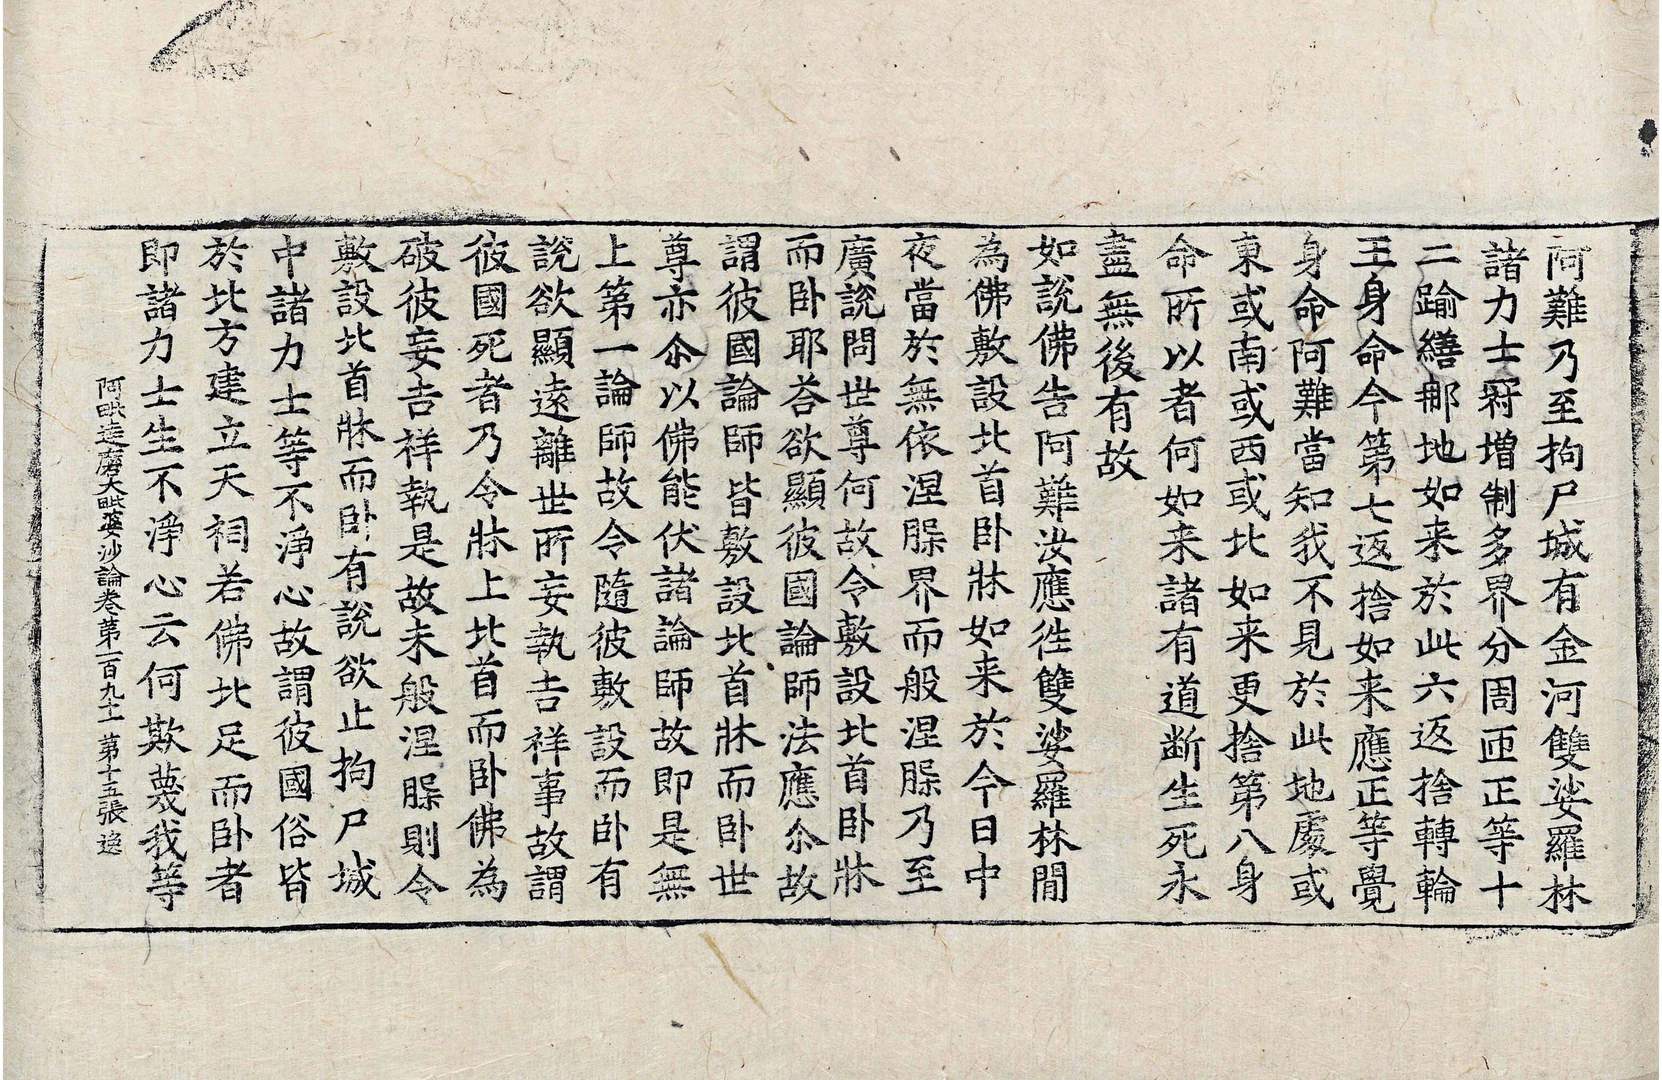 阿難乃至拘尸城有金河雙娑羅林
諸力士冠增制多界分周匝正等十
二踰繕那地如来於此六返捨轉輪
王身命今第七返捨如来應正等覺
身命阿難當知我不見於此地處或
東或南或西或北如来更捨第八身
命所以者何如来諸有道断生死永
盡無後有故
如說佛告阿難汝應徃雙娑羅林間
為佛敷設北首卧牀如来於今日中
夜當於無依涅槃界而般涅槃乃至
廣說問世尊何故令敷設北首卧牀
而卧耶荅欲顯彼國論師法應尒故
謂彼國論師皆敷設北首牀而卧世
尊亦尒以佛能伏諸論師故即是無
上第一論師故令隨彼敷設而卧有
說欲顯遠離世所妄執吉祥事故謂
彼國死者乃令牀上北首而卧佛為
破彼妄吉祥執是故未般涅槃則令
敷設北首牀而卧有說欲止拘尸城
中諸力士等不淨心故謂彼國俗皆
於北方建立天祠若佛北足而卧者
即諸力士生不淨心云何欺蔑我等
阿毗達磨大毗婆沙論卷第一百九十一 第十五張 逸